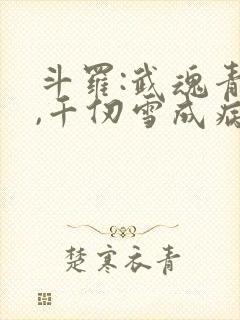 斗罗:武魂青
,千仞雪成病
楚寒衣青